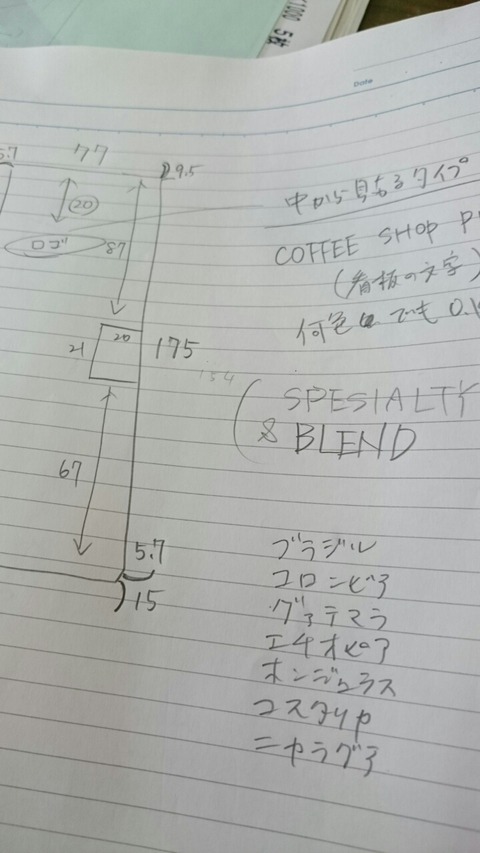 1000 5枚
Date
5.7
77
29.5
20
ロゴ
87
20
21
175
154
67
5.7
15
中から見るタイプ
COFFEE SHOP
(看板の文字)
何色でも 0.
(SPESIALTY
& BLEND
ブラジル
コロンビア
グァテマラ
エチオピア
ホンジュラス
コスタリカ
ニカラグア